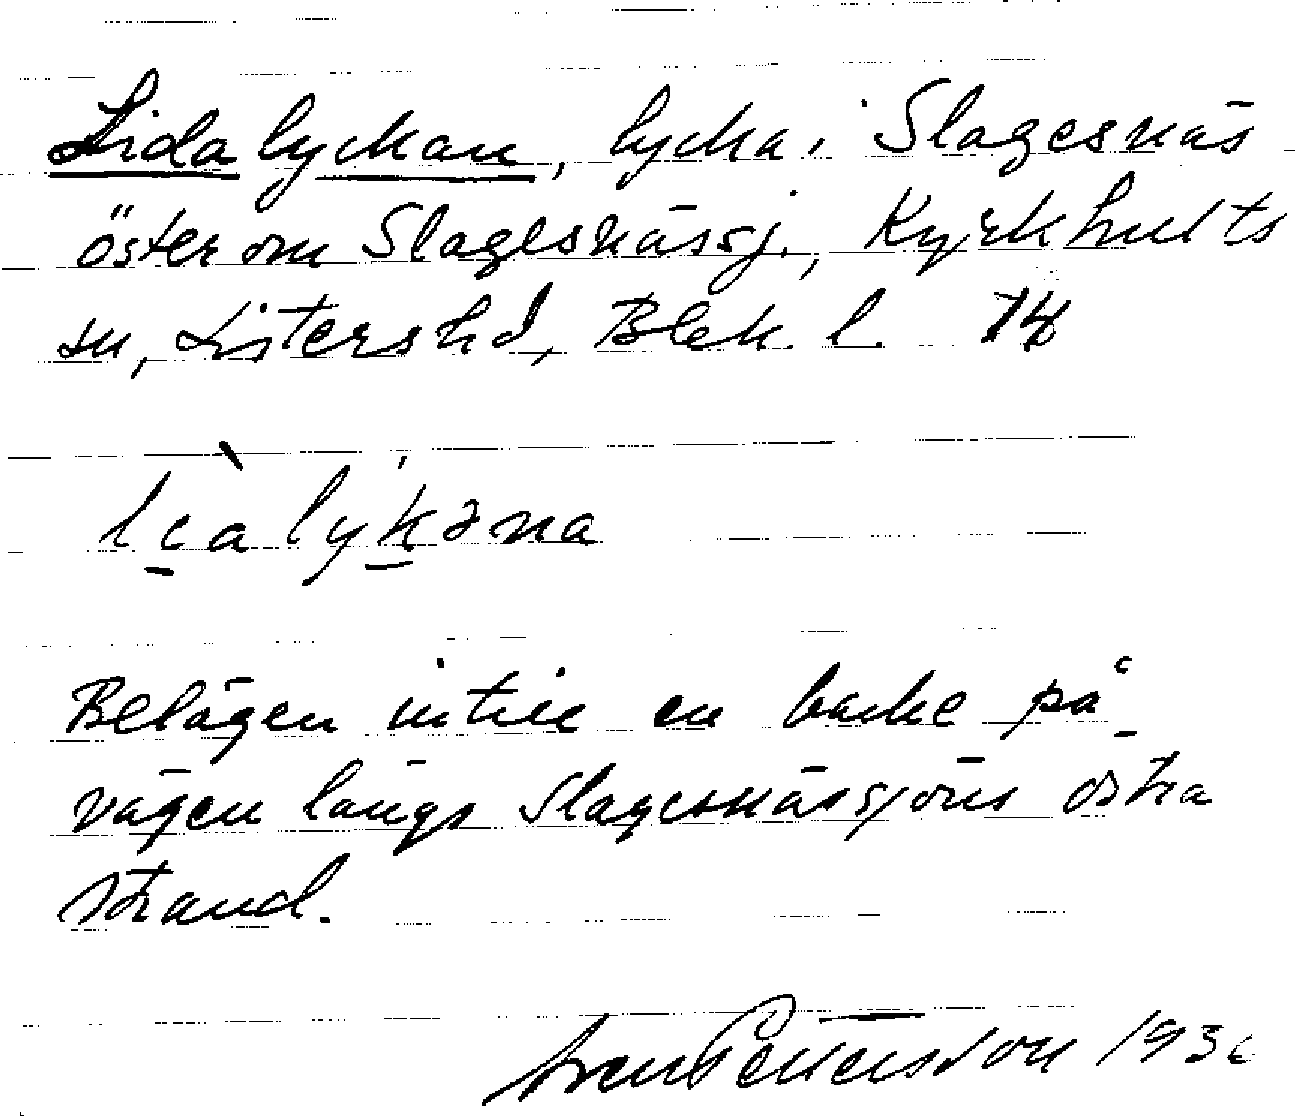 Lidalyckan, lycka i Slagesnäs
öster om Slagesnässj., Kyrkhults
sn, Listers hd, Blek. l. 14
lıalykəna
Belägen intill en backe på
vägen längs Slagesnässjöns östra
strand.
Sven Pettersson 1936